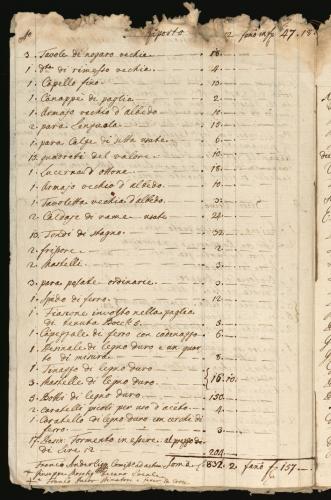 Riporto 2 fano in ff 47.18
3. Tavole di nogaro vechie 18.
1. dta di rimesso vechia. 4.
1. Capello fino. 10.
1. Canappe di paglia 2.
1. Armajo vechio d'albedo 10.
2. para Lenzuola 10.
1. para Calze di setta usate 6.
10. quadretti del valore 10.
1. Lucerna d'ottone 18.
1. Armajo vechio d'albedo. 10.
1. Tavoletta vechia d'albedo. 3.
2. Caldaje di rame usate 24.
10. Tondi di stagno. 32.
2. frisore 2.
2. Mastelle 3.
3. para posate ordinarie 3.
1. Spedo di ferro. 12
1. Fiascone investo nella paglia
di tenuta Bocce 6. 3.
1. Capezzale di ferro con cadenazzo 6.
1. di legno duro e un quar
to di misura 8.
1. Tinazzo di legno duro
3. Mastelle di legno duro. 16.10.
5. Botti di legno duro. 150.
2. Caratello picoli per uso d'aceto. 4.
1. Caratello di legno duro con cerchi di
ferro. 3.
17. Formento in essere, al prezzo
di Lire 12 204
Soma 832. 2 fano f 157.